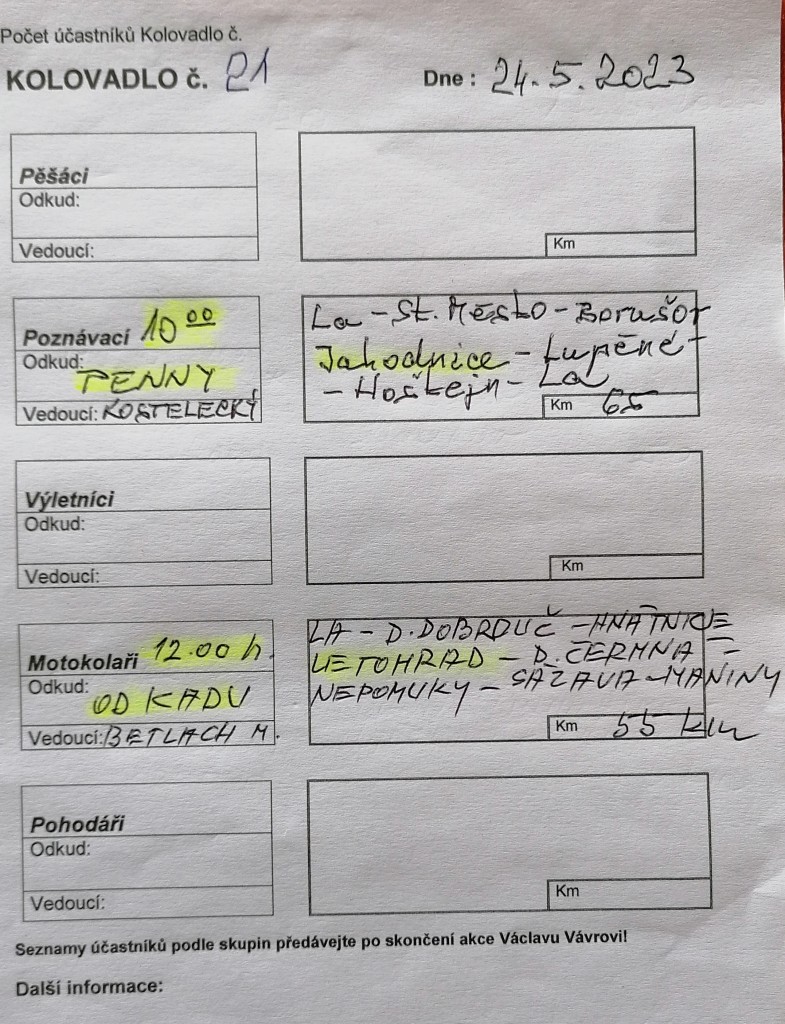 Počet účastníků Kolovadlo č.
KOLOVADLO č. 21 Dne : 24.5.2023
Pěšáci
Odkud:
Vedoucí:
Km
Poznávací 10 00
Odkud: PENNY
Vedoucí: KOSTELECKÝ
La - St. Město - Borušov
Jahodnice - Lupěné -
- Hoštejn - La
Km 65
Výletníci
Odkud:
Vedoucí:
Km
Motokolaři 12.00 h.
Odkud: OD KADU
Vedoucí: BETLACH M.
LA - D. DOBROUČ - HNÁTNICE
LETOHRAD - D. ČERMNÁ -
NEPOMUKY - SÁZAVA - MANINY
Km 55 km
Pohodáři
Odkud:
Vedoucí:
Km
Seznamy účastníků podle skupin předávejte po skončení akce Václavu Vávrovi!
Další informace: